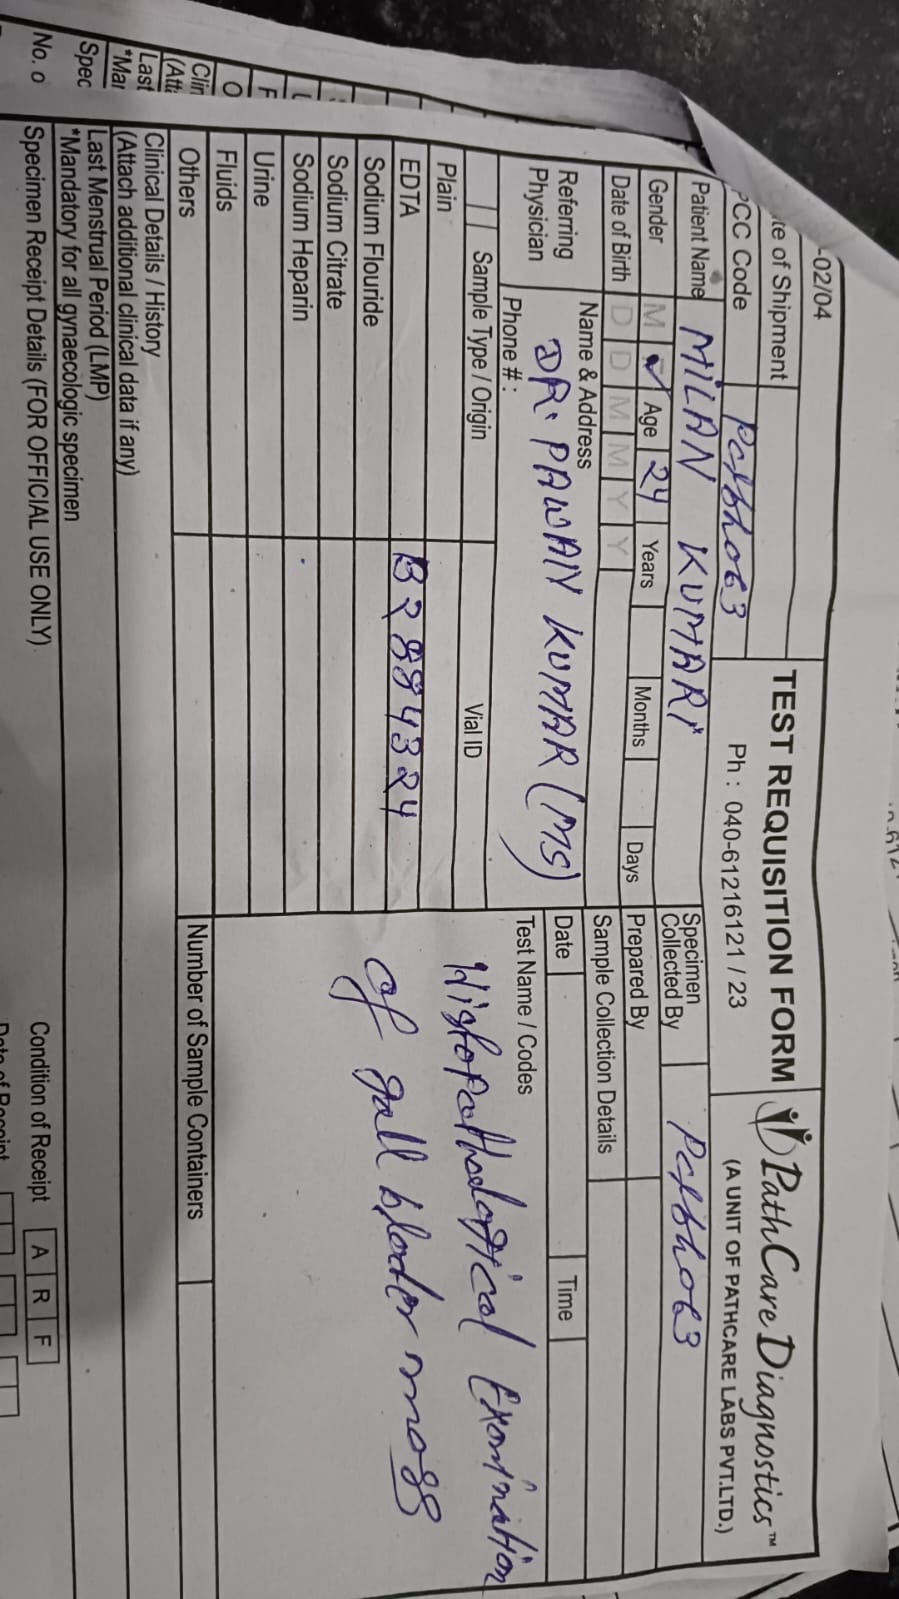 -02/04
TEST REQUISITION FORM
Ph : 040-61216121 / 23
PathCare Diagnostics™
(A UNIT OF PATHCARE LABS PVT.LTD.)
te of Shipment
PCC Code
Patient Name MILAN KUMARI
Gender M Age 24 Years Months Days
Date of Birth D D M M Y Y
Referring Physician
Name & Address
DR. PAWAN KUMAR (MS)
Phone # :
Specimen Collected By
Prepared By
Sample Collection Details
Date Time
Test Name / Codes
Histopathological Examination
of gall blader mass
Sample Type / Origin Vial ID
Plain
EDTA B2884324
Sodium Flouride
Sodium Citrate
Sodium Heparin
Urine
Fluids
Others
Number of Sample Containers
Clinical Details / History
(Attach additional clinical data if any)
Last Menstrual Period (LMP)
*Mandatory for all gynaecologic specimen
Specimen Receipt Details (FOR OFFICIAL USE ONLY)
Condition of Receipt A R F
Clin
(Att
Last
*Mar
Spec
No. o